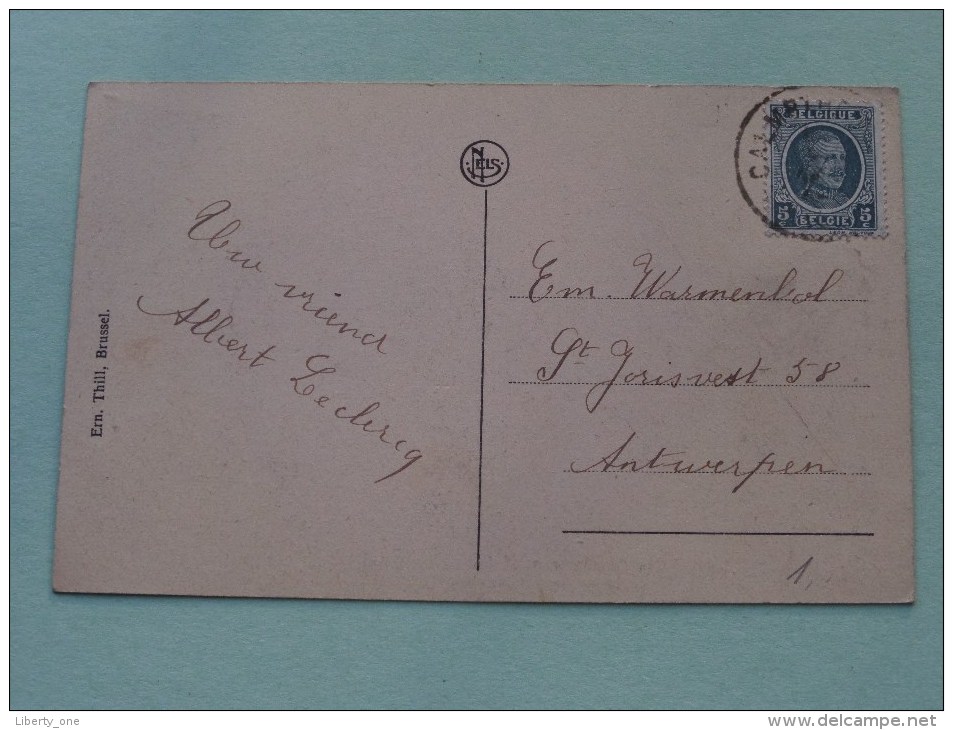 NELS
CALMPTHO
BELGIQUE
5 c 5 c
BELGIË
Uw vriend
Albert Leclercq
Ern. Thill, Brussel.
Em. Warmenbol
St Jorisvest 58
Antwerpen
1,
Liberty_one
http://www.delcampe.net